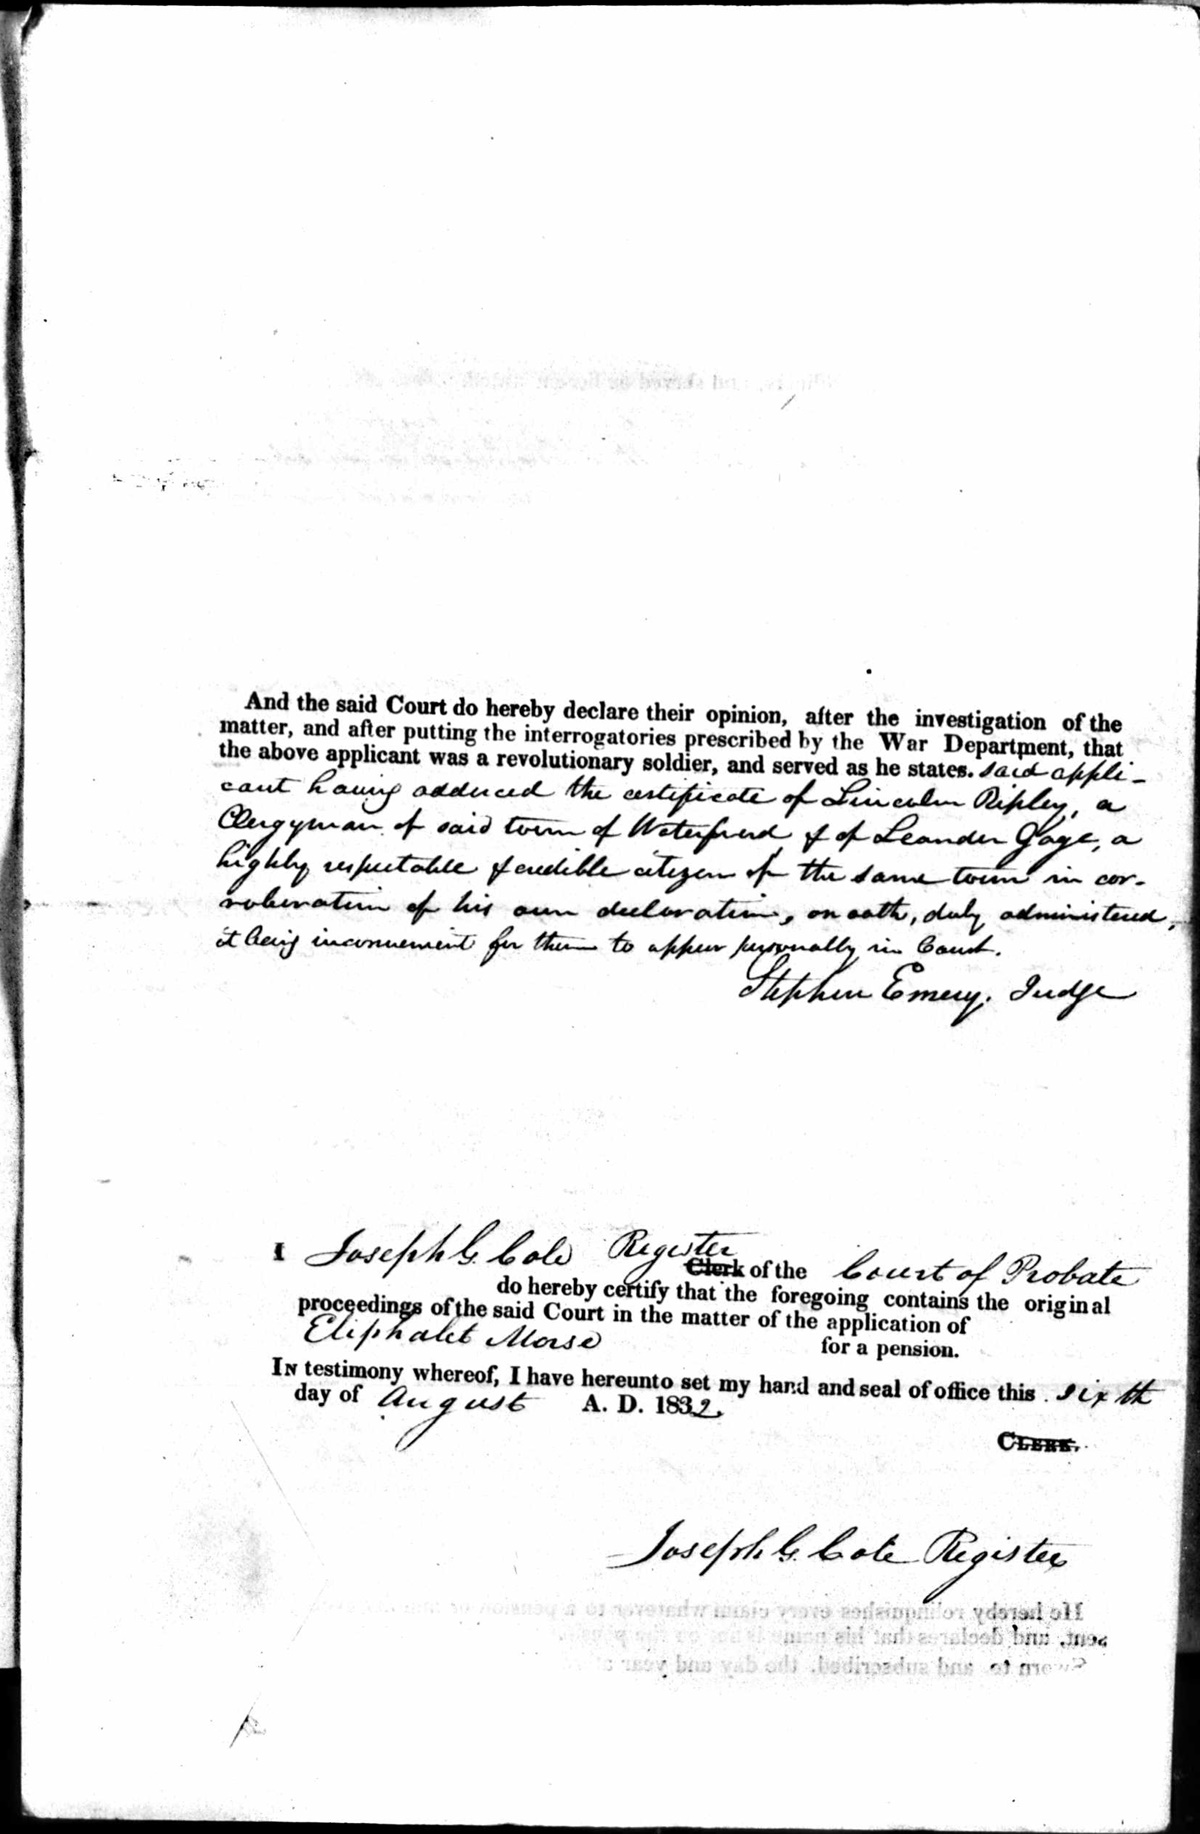 And the said Court do hereby declare their opinion, after the investigation of the
matter, and after putting the interrogatories prescribed by the War Department, that
the above applicant was a revolutionary soldier, and served as he states. said appli-
cant having adduced the certificate of Lincoln Ripley, a
Clergyman of said town of Waterford & of Leander Gage, a
highly respectable & credible citizen of the same town in cor-
roberation of his own declaration, on oath, duly administered,
it being inconvenient for them to appear personally in Court.
Stephen Emery. Judge
I Joseph G. Cole Register
Clerk of the Court of Probate
do hereby certify that the foregoing contains the original
proceedings of the said Court in the matter of the application of
Eliphalet Morse for a pension.
IN testimony whereof, I have hereunto set my hand and seal of office this sixth
day of August A. D. 1832.
CLERK.
Joseph G. Cole Register
He hereby relinquishes every claim whatever to a pension or
sent, and declares that his name is not on the
Sworn to and subscribed, the day and year